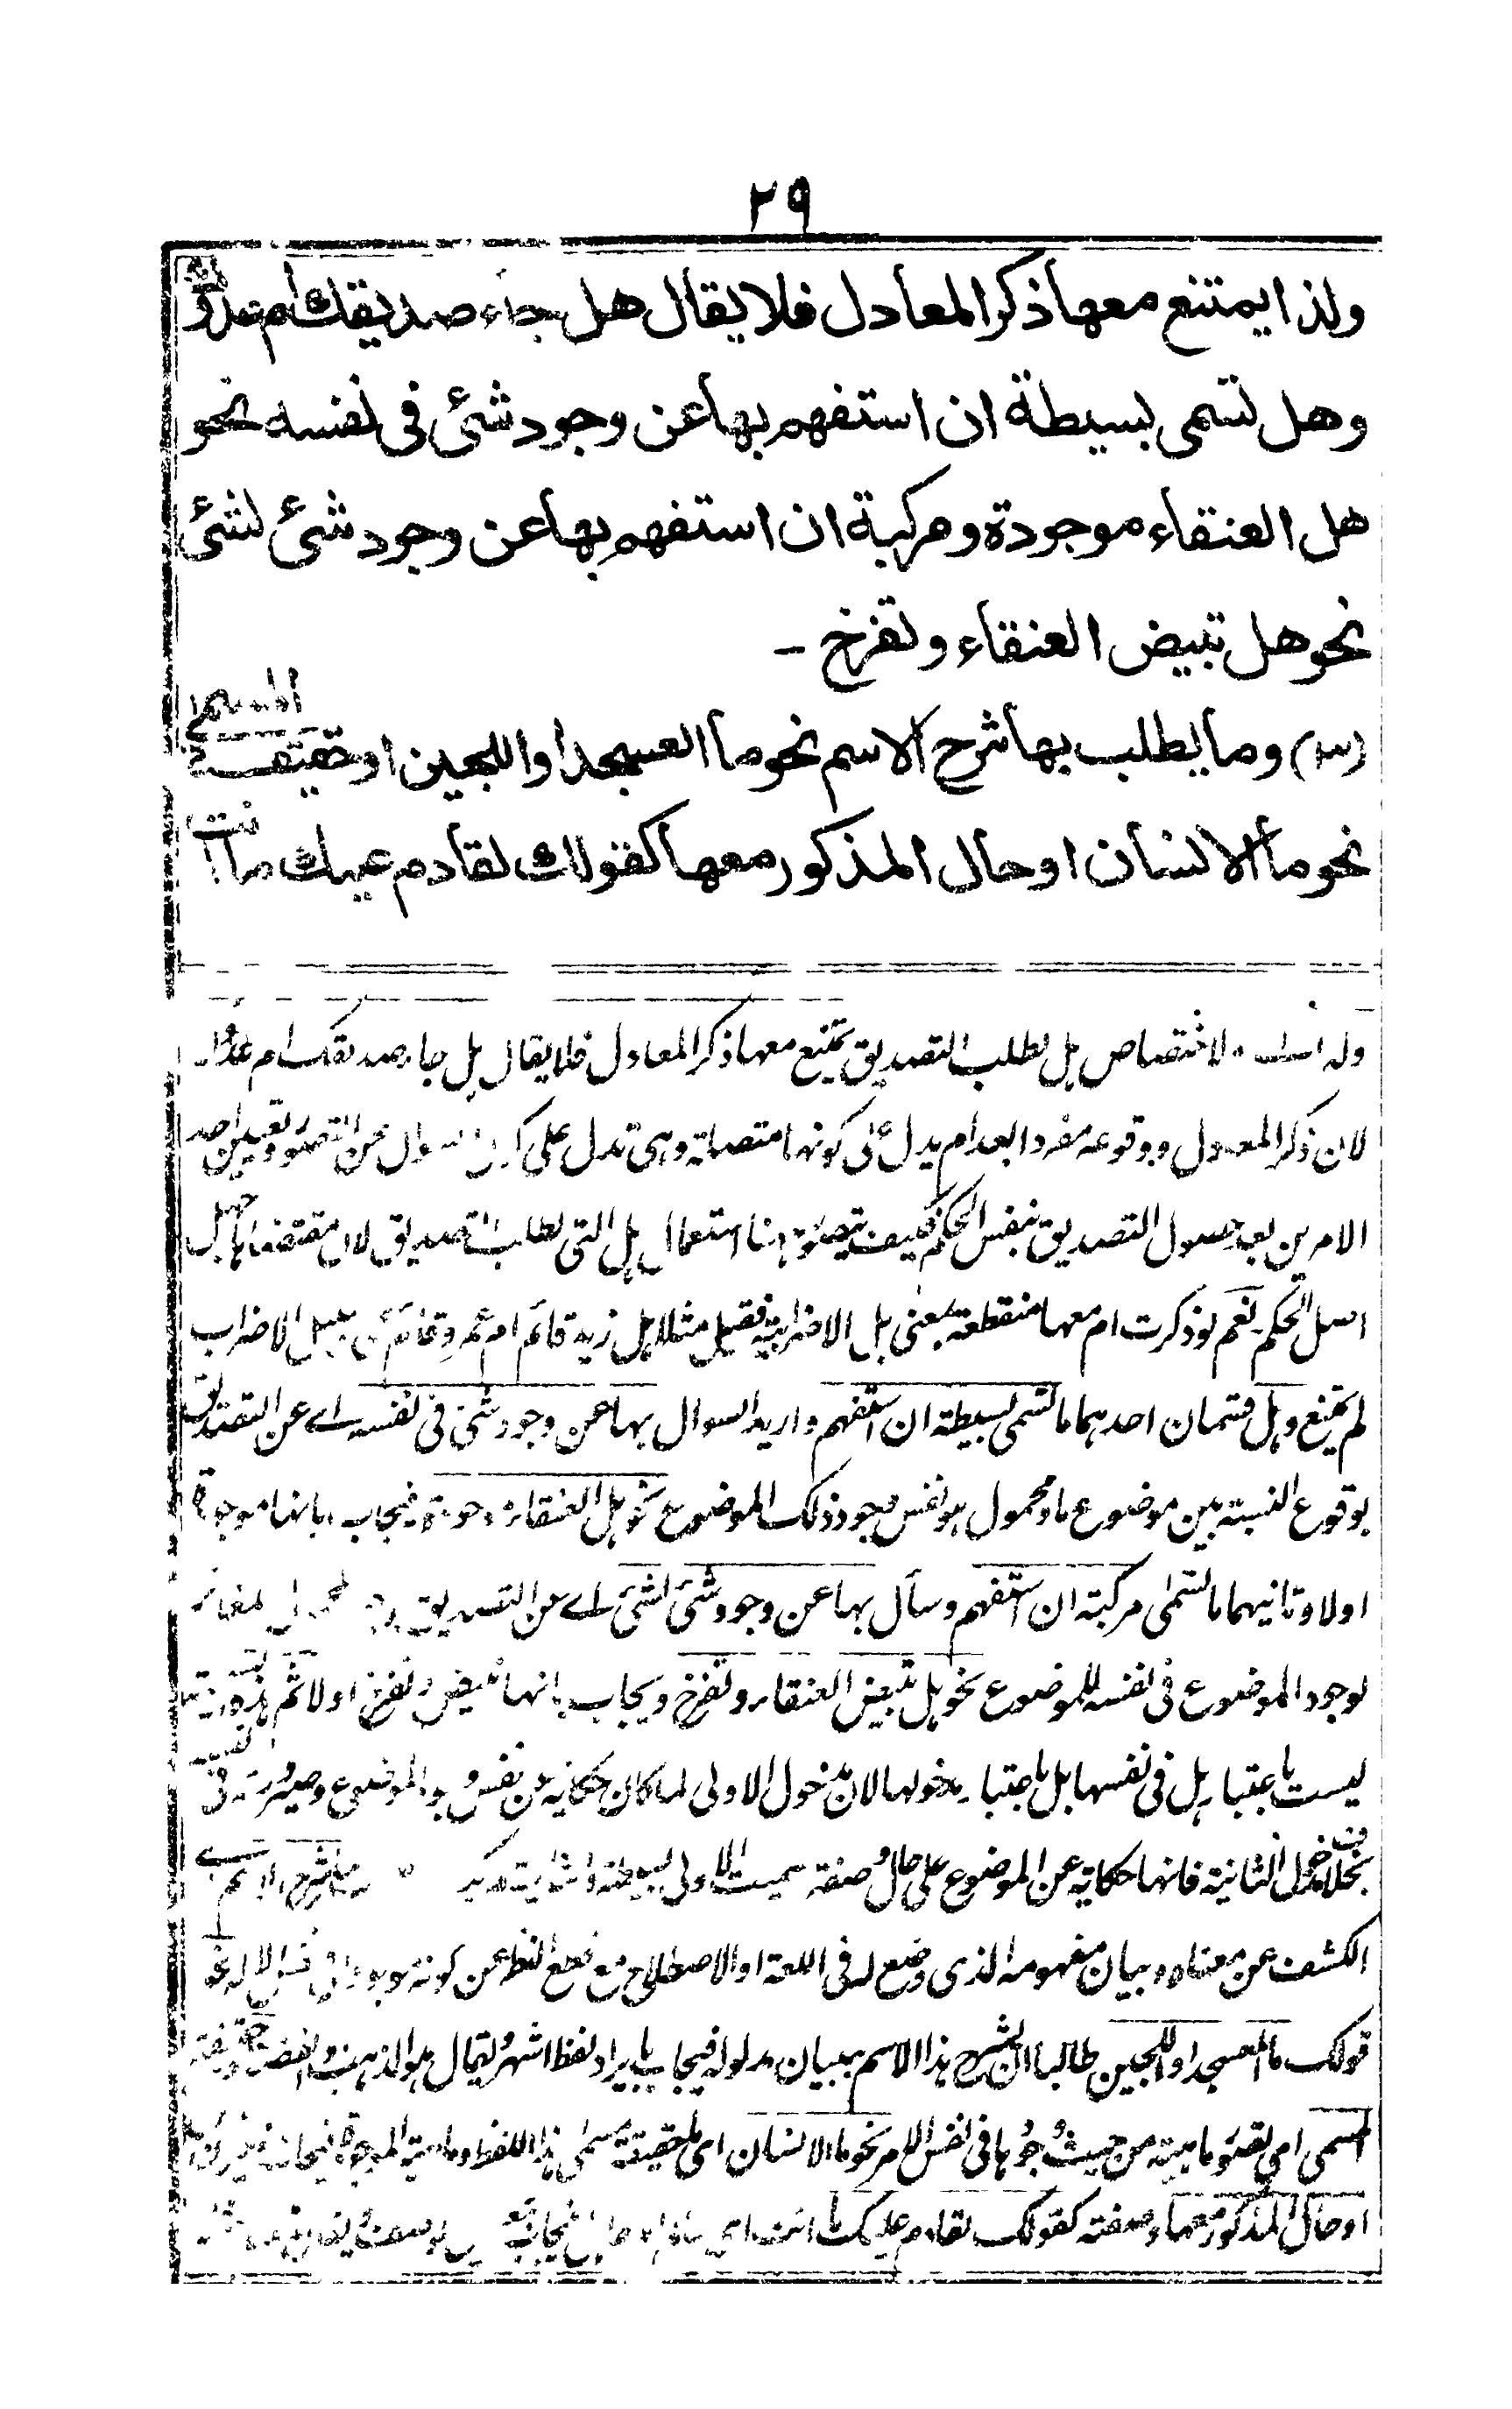 ٢٩
ولذا يمتنع معها ذكر المعادل فلا يقال هل جاء صديقك أم عدوك
وهل تسمى بسيطة ان استفهم بها عن وجود شئ فى نفسه نحو
هل العنقاء موجودة ومركبة ان استفهم بها عن وجود شئ لشئ
نحو هل تبيض العنقاء وتفرخ -
(٣) وما يطلب بها شرح الاسم نحو ما العسجد او اللجين او حقيقة المسمى
نحو ما الانسان او حال المذكور معها كقولك لقادم عليك ما انت
لاختصاص هل بطلب التصديق يمتنع معها ذكر المعادل فلا يقال هل جاء صديقك ام عدوك
لان ذكر المعادل ووقوعه مفردا بعد ام يدل على كونها متصلة وهى تدل على السوال عن التصور وتعيين احد
الامرين بعد حصول التصديق بنفس الحكم فكيف يتصور هنا استعمال هل التى لطلب التصديق لان مقتضاها جهل
اصل الحكم نعم لو ذكرت ام معها منقطعة بمعنى بل الاضرابية فقيل مثلا هل زيد قائم ام عمرو قائم سبيل الاضراب
لم يمتنع وهل قسمان احدهما ما تسمى بسيطة ان استفهم واريد السوال بها عن وجود شئ فى نفسه اے عن التصديق
بوقوع النسبة بين موضوع ما ومحمول هو نفس وجود ذلك الموضوع نحو هل العنقاء موجودة فيجاب بانها موجودة
اولا وثانيهما ما تسمى مركبة ان استفهم وسأل بها عن وجود شئ لشئ اے عن التصديق مغائر
لوجود الموضوع فى نفسه للموضوع نحو هل تبيض العنقاء وتفرخ ويجاب بانها تبيض وتفرخ اولا ثم هذه
ليست باعتبار هل فى نفسها بل باعتبار مدخولها لان مدخول الاولى لما كان حكاية عن نفس الموضوع وصيرورته فى
بخلاف مدخول الثانية فانها حكاية عن الموضوع على حال وصفة سميت الاولى بسيطة والثانية مركبة شرح الاسم اے
الكشف عن معناه وبيان مفهومه الذى وضع له فى اللغة او الاصطلاح مع قطع النظر عن كونه موجودا فى نفس الامر نحو
قولك ما العسجد او اللجين طالبا ان يشرح هذا الاسم ببيان مدلوله فيجاب بايراد لفظ اشهر ويقال هو الذهب والفضة او حقيقة
المسمى اى تصور ماهيته من حيث وجودها فى نفس الامر نحو ما الانسان اى ما حقيقة مسمى هذا اللفظ وماهيته الموجودة فيجاب
او حال المذكور معها وصفته كقولك لقادم عليك ما انت اى